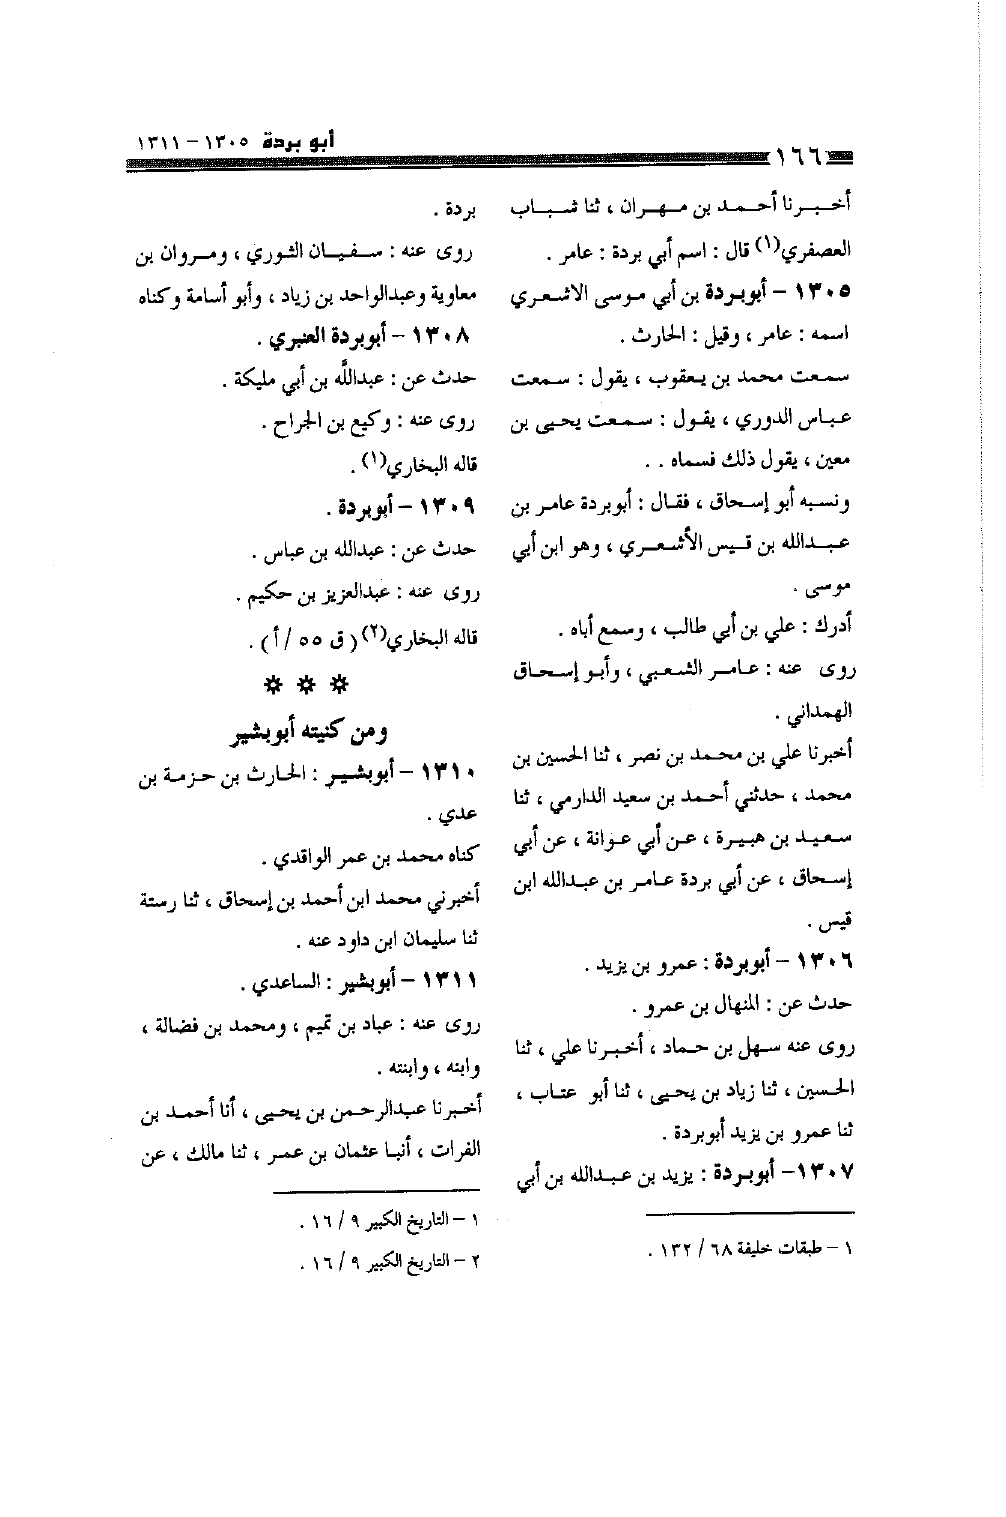 ١٦٦
أبو بردة ١٣٠٥ - ١٣١١
أخبرنا أحمد بن مهران ، ثنا شباب
العصفري(١) قال : اسم أبي بردة : عامر .
١٣٠٥ - أبوبردة بن أبي موسى الاشعري
اسمه : عامر ، وقيل : الحارث .
سمعت محمد بن يعقوب ، يقول : سمعت
عباس الدوري ، يقول : سمعت يحيى بن
معين ، يقول ذلك فسماه . .
ونسبه أبو إسحاق ، فقال : أبوبردة عامر بن
عبدالله بن قيس الأشعري ، وهو ابن أبي
موسى .
أدرك : علي بن أبي طالب ، وسمع أباه .
روى عنه : عامر الشعبي ، وأبو إسحاق
الهمداني .
أخبرنا علي بن محمد بن نصر ، ثنا الحسين بن
محمد ، حدثني أحمد بن سعيد الدارمي ، ثنا
سعيد بن هبيرة ، عن أبي عوانة ، عن أبي
إسحاق ، عن أبي بردة عامر بن عبدالله ابن
قيس .
١٣٠٦ - أبوبردة : عمرو بن يزيد .
حدث عن : المنهال بن عمرو .
روى عنه سهل بن حماد ، أخبرنا علي ، ثنا
الحسين ، ثنا زياد بن يحيى ، ثنا أبو عتاب ،
ثنا عمرو بن يزيد أبوبردة .
١٣٠٧- أبوبردة : يزيد بن عبدالله بن أبي
١ - طبقات خليفة ٦٨ / ١٣٢ .
بردة .
روى عنه : سفيان الثوري ، ومروان بن
معاوية وعبدالواحد بن زياد ، وأبو أسامة وكناه
١٣٠٨ - أبوبردة العنبري .
حدث عن : عبداللَّه بن أبي مليكة .
روى عنه : وكيع بن الجراح .
قاله البخاري(١) .
١٣٠٩ - أبوبردة .
حدث عن : عبدالله بن عباس .
روى عنه : عبدالعزيز بن حكيم .
قاله البخاري(٢) ( ق ٥٥ / أ ) .
* * *
ومن كنيته أبوبشير
١٣١٠ - أبوبشير : الحارث بن حزمة بن
عدي .
كناه محمد بن عمر الواقدي .
أخبرني محمد ابن أحمد بن إسحاق ، ثنا رستة
ثنا سليمان ابن داود عنه .
١٣١١ - أبوبشير : الساعدي .
روى عنه : عباد بن تميم ، ومحمد بن فضالة ،
وابنه ، وابنته .
أخبرنا عبدالرحمن بن يحيى ، أنا أحمد بن
الفرات ، أنبا عثمان بن عمر ، ثنا مالك ، عن
١ - التاريخ الكبير ٩ / ١٦ .
٢ - التاريخ الكبير ٩ / ١٦ .